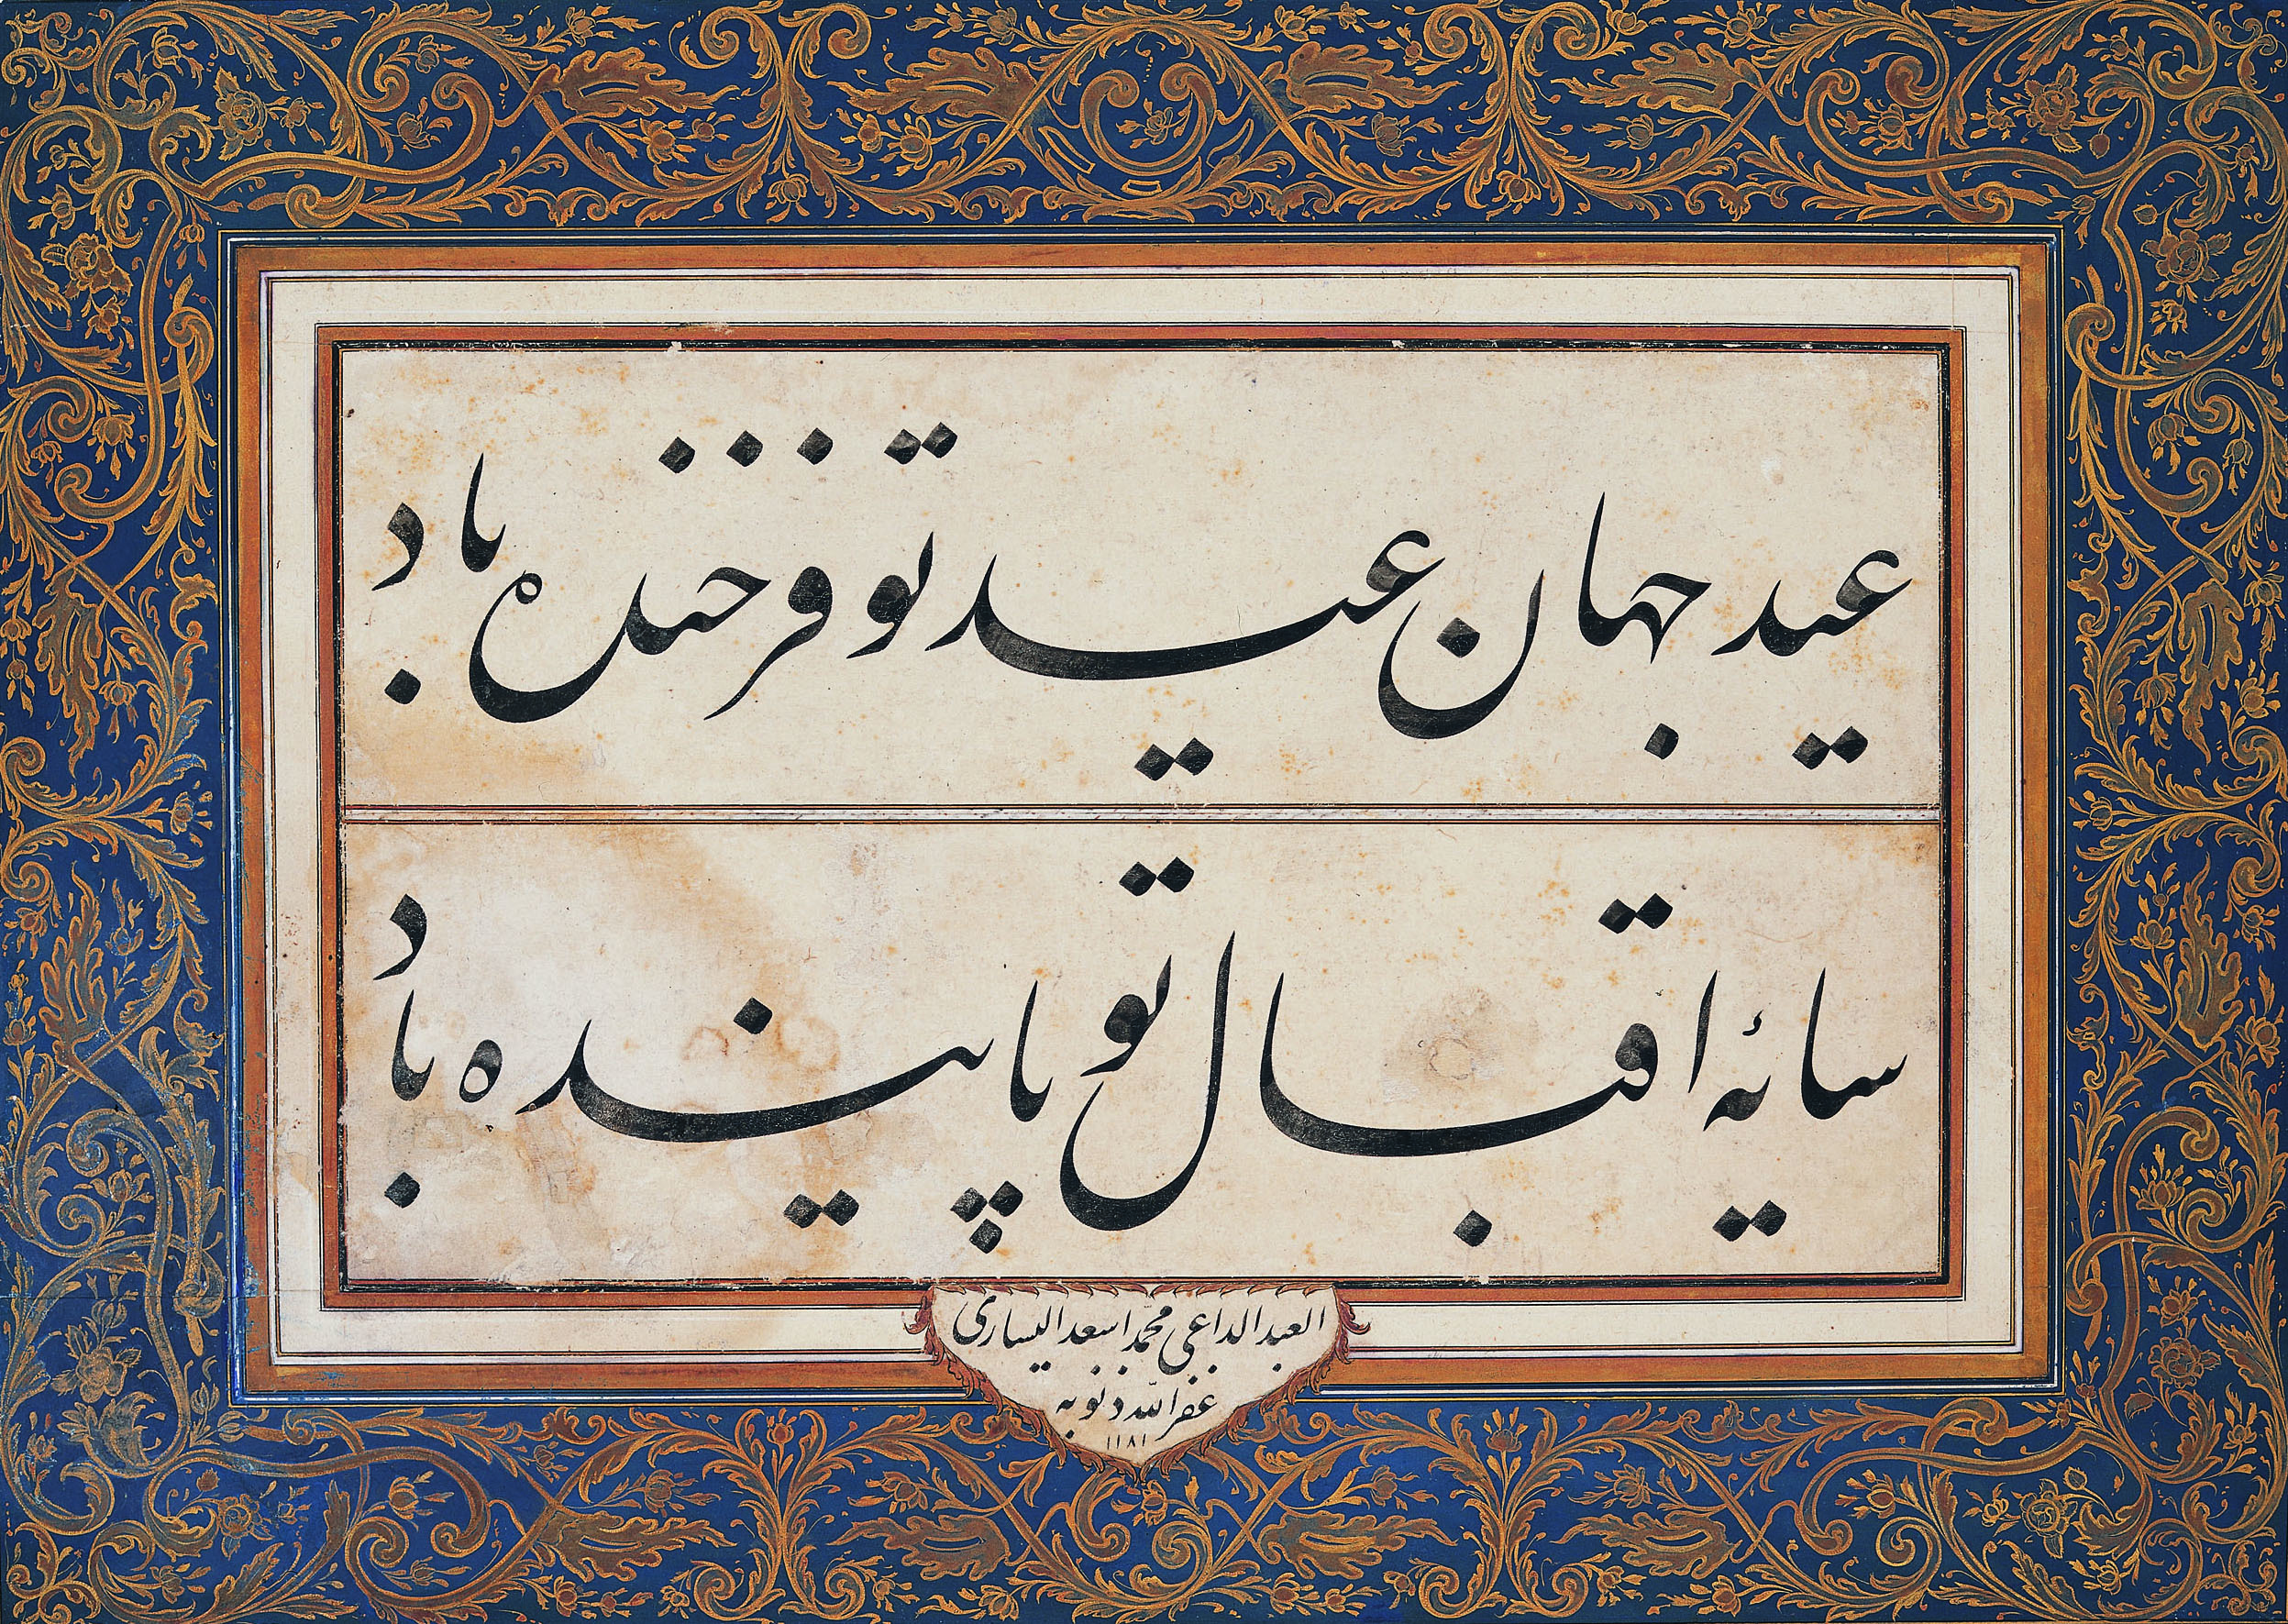 عید جهان عید تو فرخنده باد
سایهٔ اقبال تو پاینده باد
العبد الداعی محمد اسعد الیساری
غفر الله ذنوبه
١١٨١